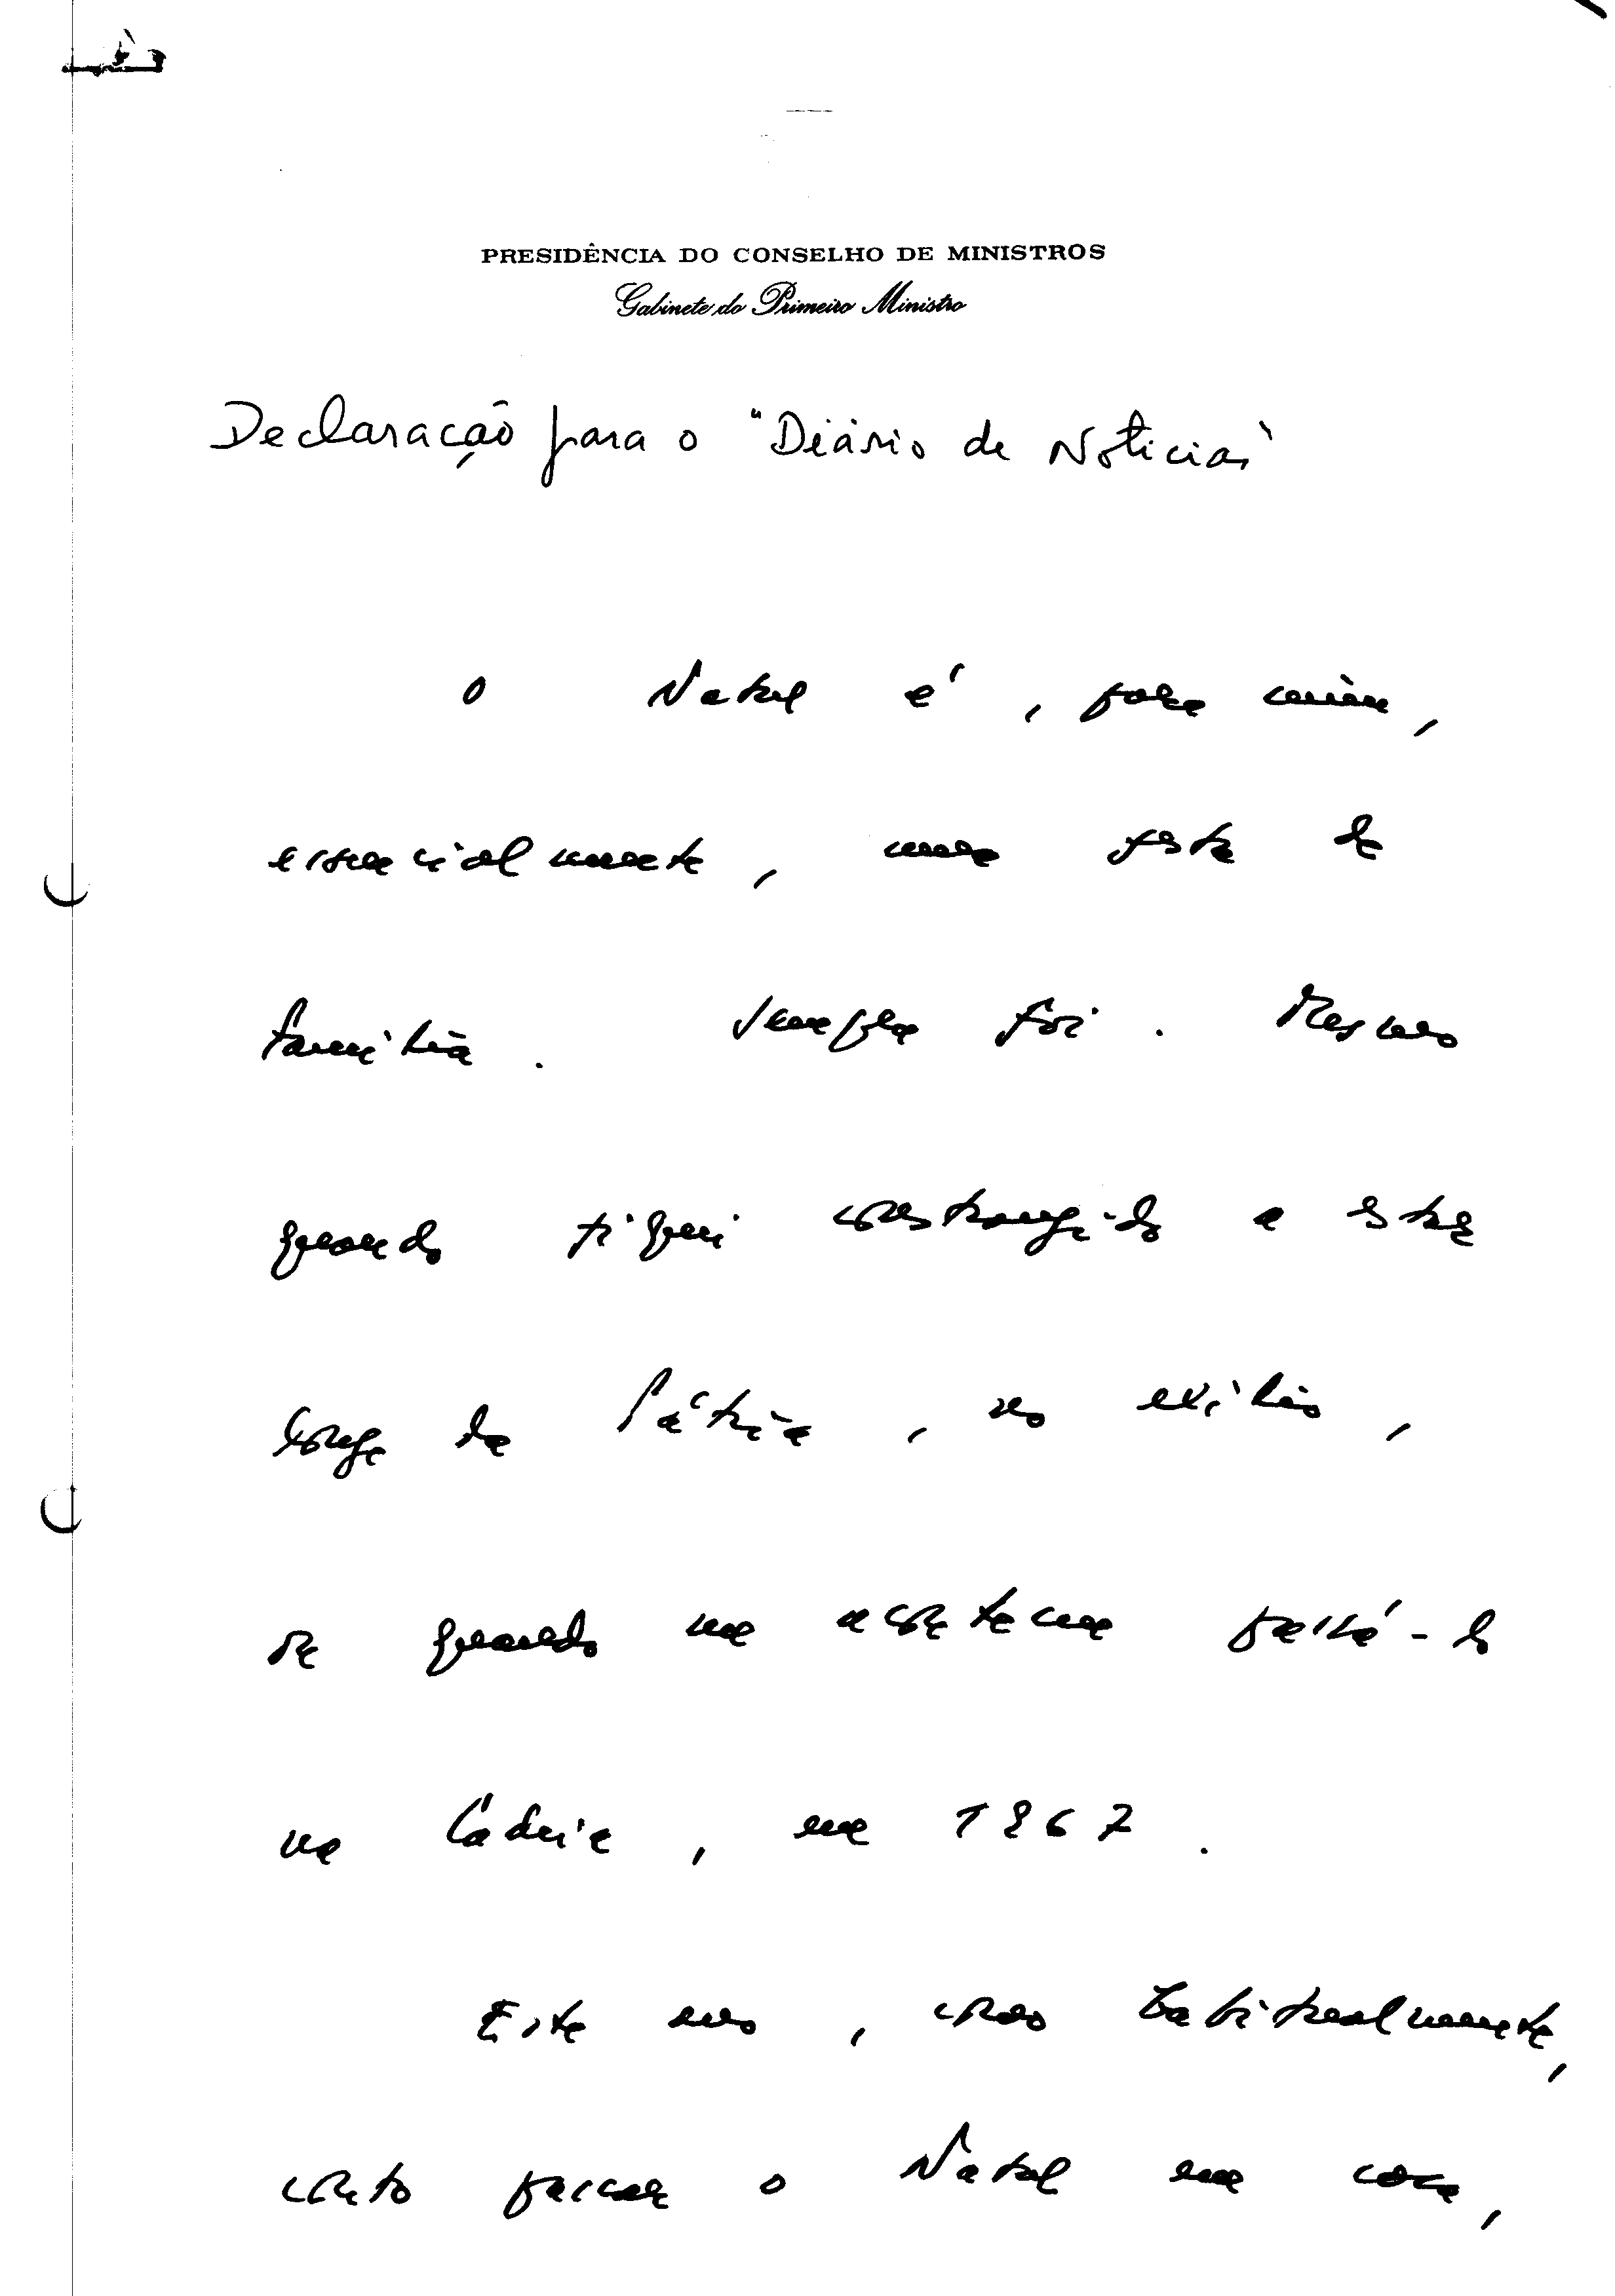 PRESIDÊNCIA DO CONSELHO DE MINISTROS
Gabinete do Primeiro Ministro
Declaração para o "Diário de Notícias"
O Natal é, para mim,
essencialmente, uma festa de
família. Sempre foi. Mesmo
quando fiquei constrangido a estar
longe da Pátria, no exílio,
ou quando me aconteceu passá-lo
na Cadeia, em 1967.
Este ano, como habitualmente,
conto passar o Natal em casa,